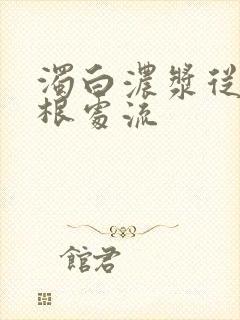 濁白濃漿從
根處流
館君